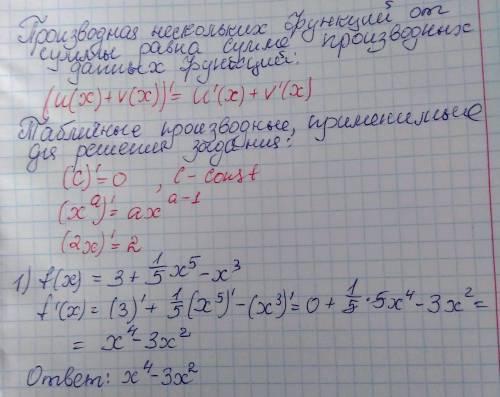 Производная нескольких функций от
суммы равна сумме производных
данных функций:
(u(x)+v(x))'= u'(x)+v'(x)
Табличные производные, применимые
для решения задания:
(C)'=0 , C-const
(x^a)'= ax^{a-1}
(2x)'=2
1) f(x) = 3 + \frac{1}{5}x^5 - x^3
f'(x) = (3)' + \frac{1}{5}(x^5)' - (x^3)' = 0 + \frac{1}{5} \cdot 5x^4 - 3x^2 =
= x^4 - 3x^2
Ответ: x^4 - 3x^2